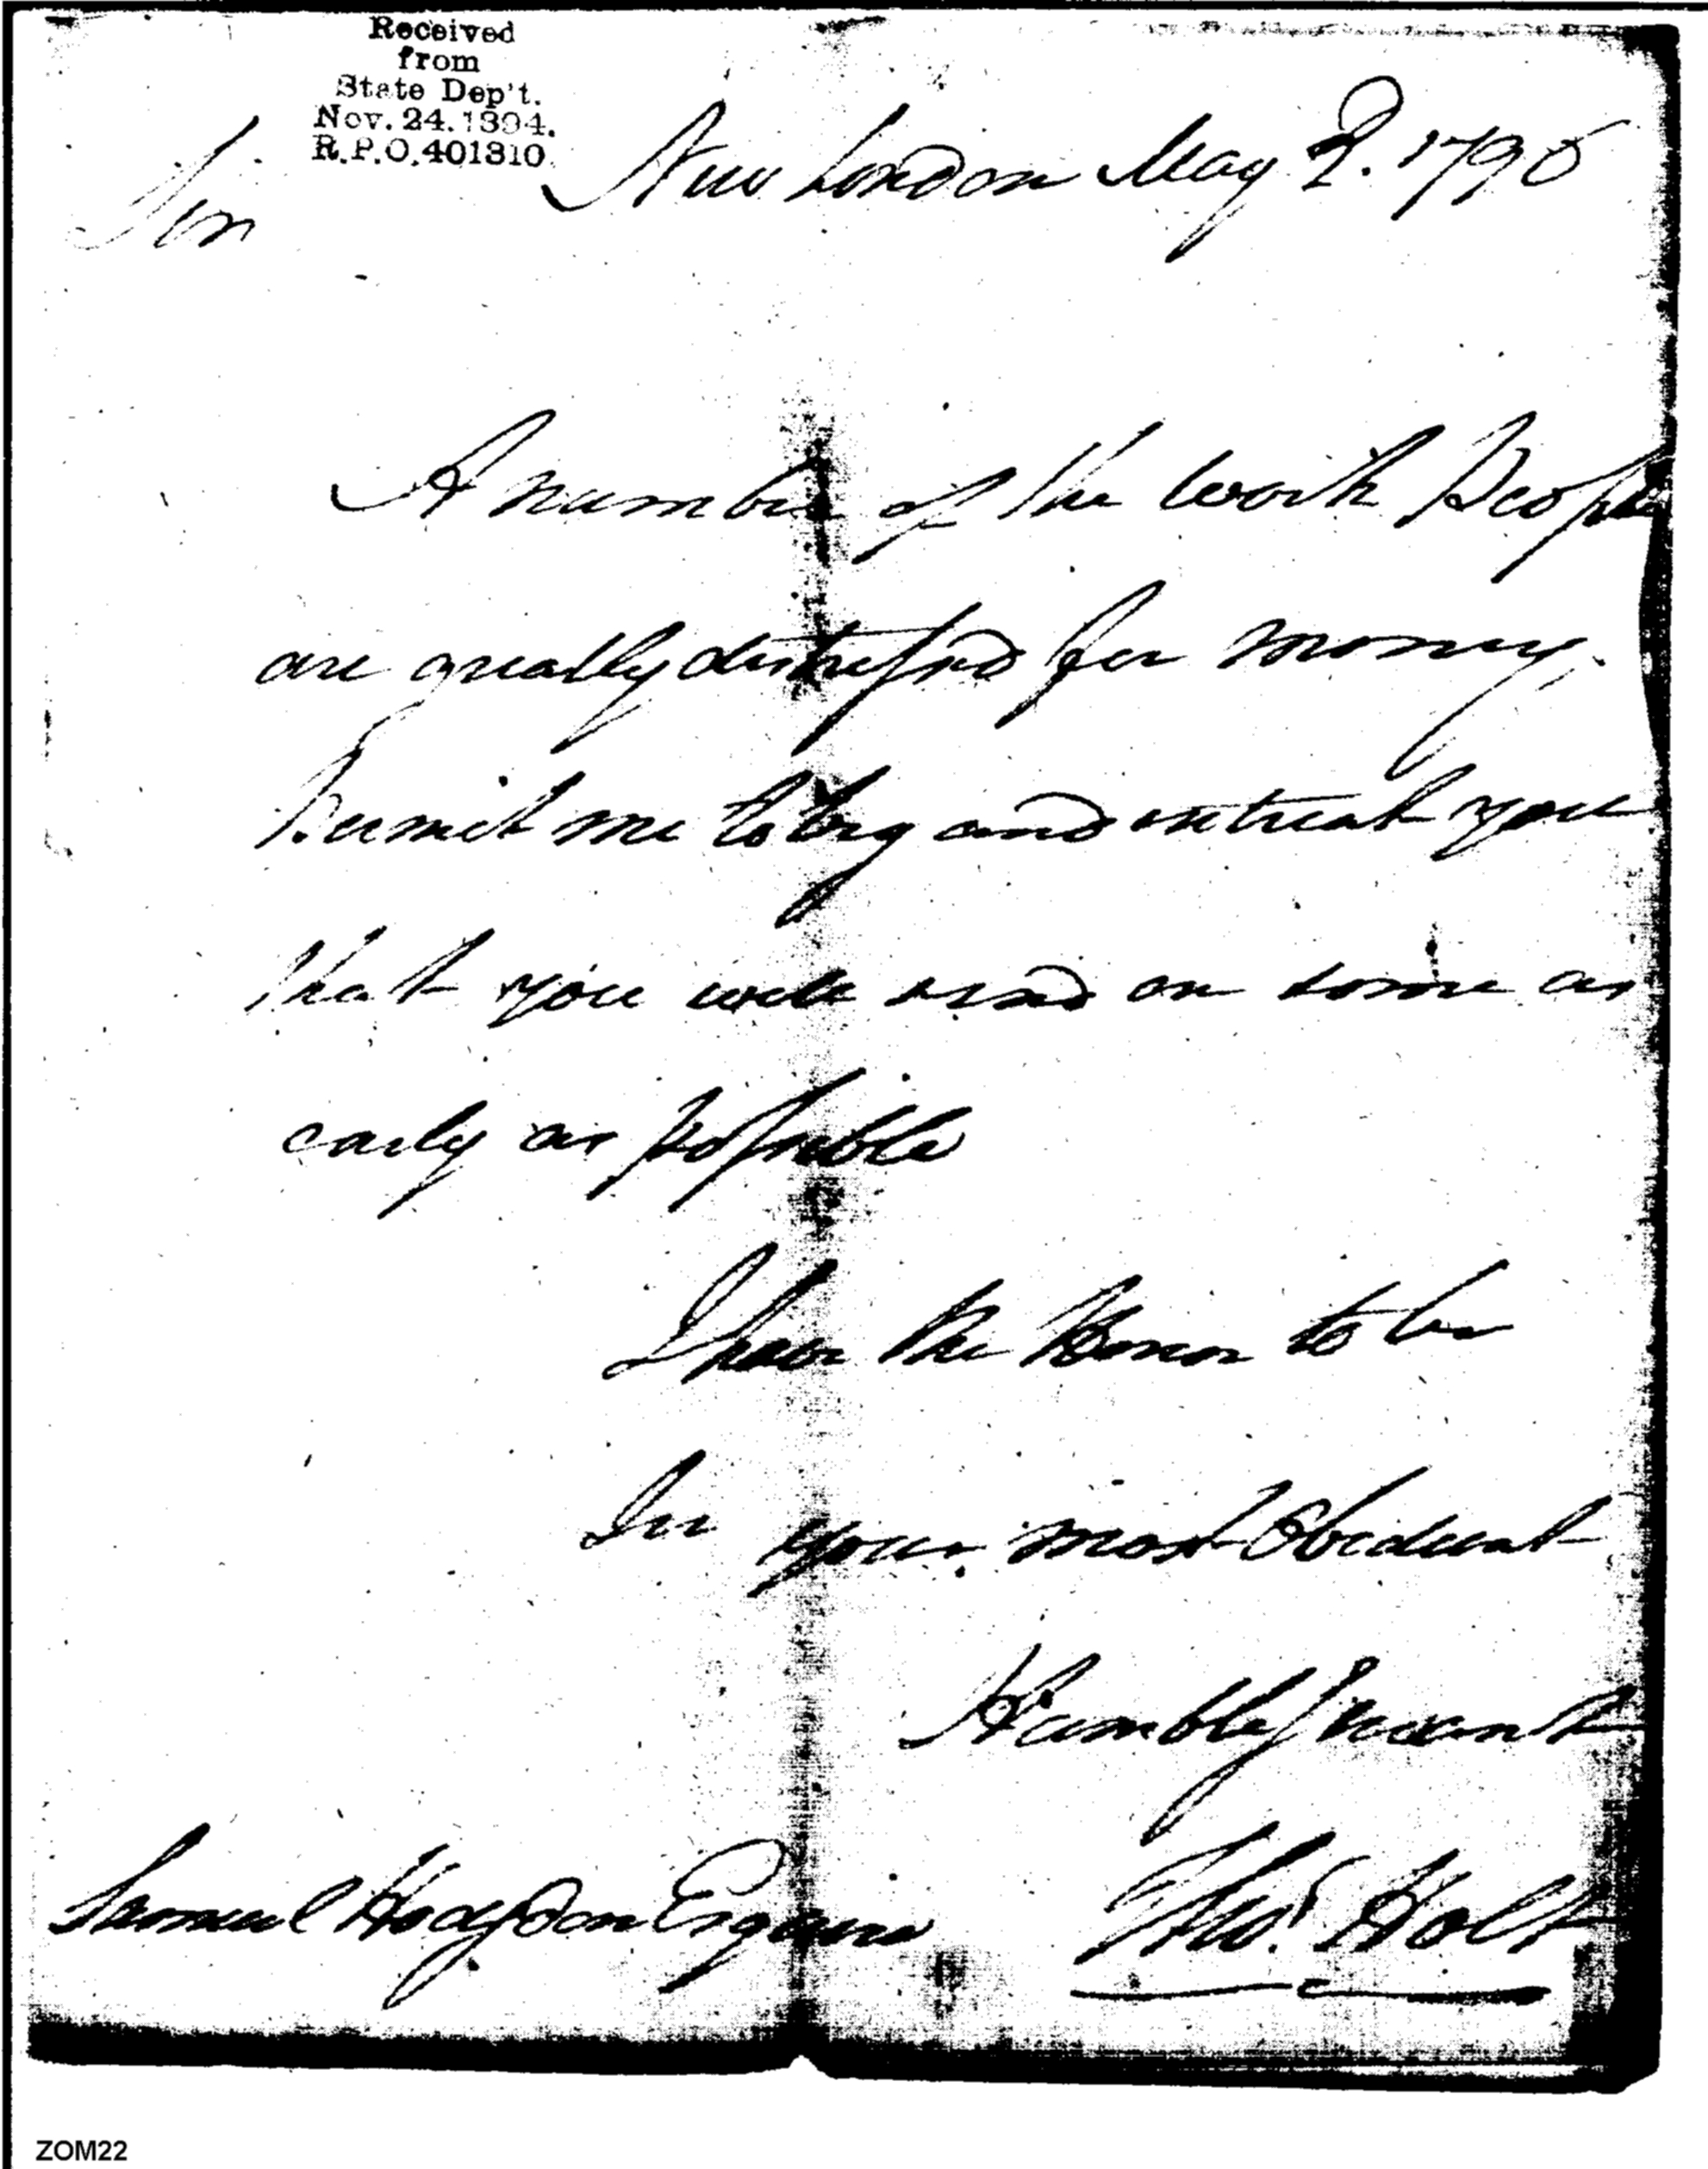 Received
from
State Dep't.
Nov. 24. 1894.
R.P.O. 401310
New London May 2. 1796
Sir
A number of the work People
are greatly distressed for money.
Permit me to beg and intreat you
that you will send on some as
early as possible
I have the Honor to be
Sir your most Obedient
Humble Servant
Samuel Hodgdon Esquire Thos. Holt
ZOM22